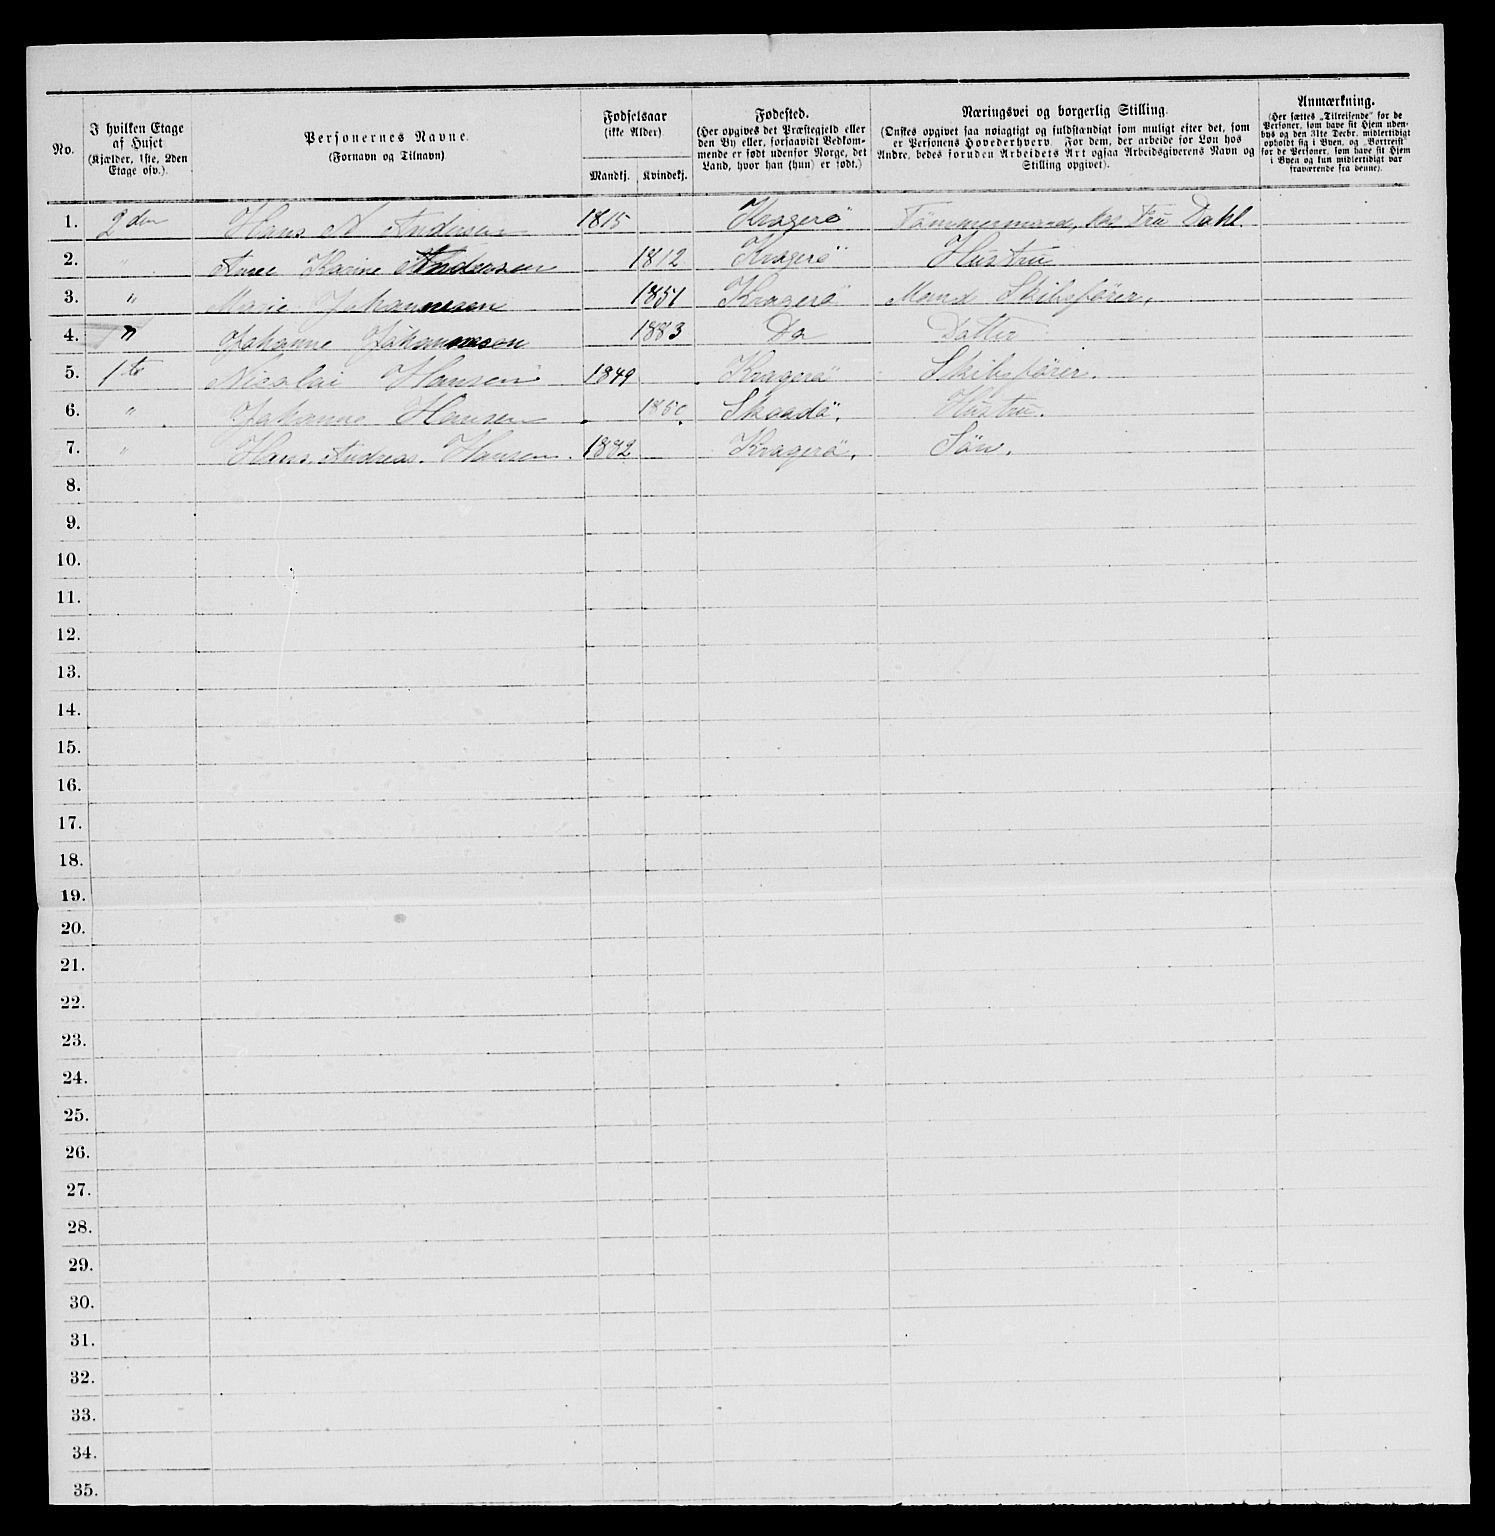 No.
I hvilken Etage
af Huset
(Kjælder, 1ste, 2den
Etage osv.)
Personernes Navne.
(Fornavn og Tilnavn)
Fødselsaar
(ikke Alder)
Mandkj. Kvindekj.
Fødested.
(Her opgives det Præstegjeld eller
den By eller, forsaavidt Vedkom-
mende er født udenfor Norge, det
Land, hvor han (hun) er født.)
Næringsvei og borgerlig Stilling.
(Ønskes opgivet saa nøiagtigt og fuldstændigt som muligt efter det, som
er Personens Hovederhverv. For dem, der arbeide for Løn hos
Andre, bedes foruden Arbeidets Art ogsaa Arbeidsgiverens Navn og
Stilling opgivet).
Anmærkning.
(Her sættes „Tilreisende" for de
Personer, som have sit Hjem uden-
bys og den 31te Decbr. midlertidigt
opholdt sig i Byen, og „Bortreist"
for de Personer, som have sit Hjem
i Byen og kun midlertidigt var
fraværende fra denne).
1. 2den Hans N Andersen 1815 Kragerö Tömmermand, hos Fru Dahl.
2. " Anne Karine Andersen 1812 Kragerö Hustru
3. " Marie Johannesen 1851 Kragerö Mand Skibsförer.
4. " Johanne Johannesen 1883 Do Datter
5. 1te Nicolai Hansen 1849 Kragerö Skibsförer.
6. " Johanne Hansen 1850 Skaadö. Hustru.
7. " Hans Andreas. Hansen. 1882 Kragerö. Sön.
8.
9.
10.
11.
12.
13.
14.
15.
16.
17.
18.
19.
20.
21.
22.
23.
24.
25.
26.
27.
28.
29.
30.
31.
32.
33.
34.
35.